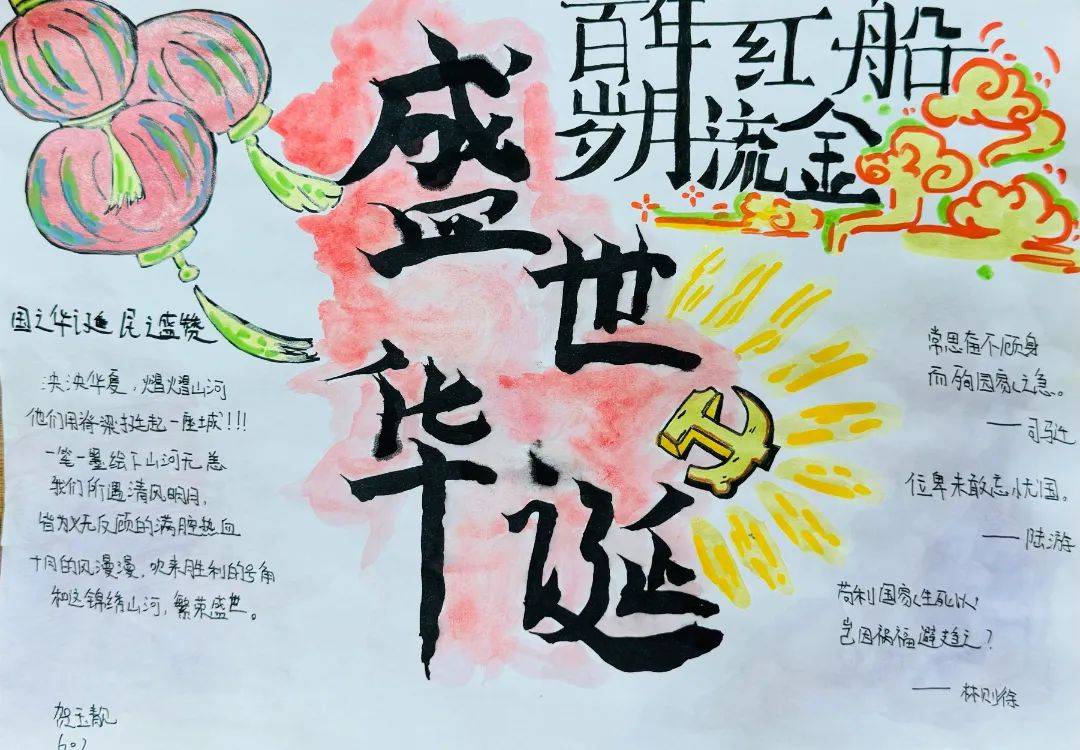 盛世华诞
百年红船
岁月流金
国之华诞 民之盛馈
泱泱华夏,熠熠山河
他们用脊梁挺起一座城!!!
一笔一墨绘下山河无恙
我们所遇清风明月,
皆为义无反顾的满腔热血
十月的风漫漫,吹来胜利的号角
和这锦绣山河,繁荣盛世。
贺玉靓
602
常思奋不顾身
而殉国家之急。
——司马迁
位卑未敢忘忧国。
——陆游
苟利国家生死以
岂因祸福避趋之?
——林则徐